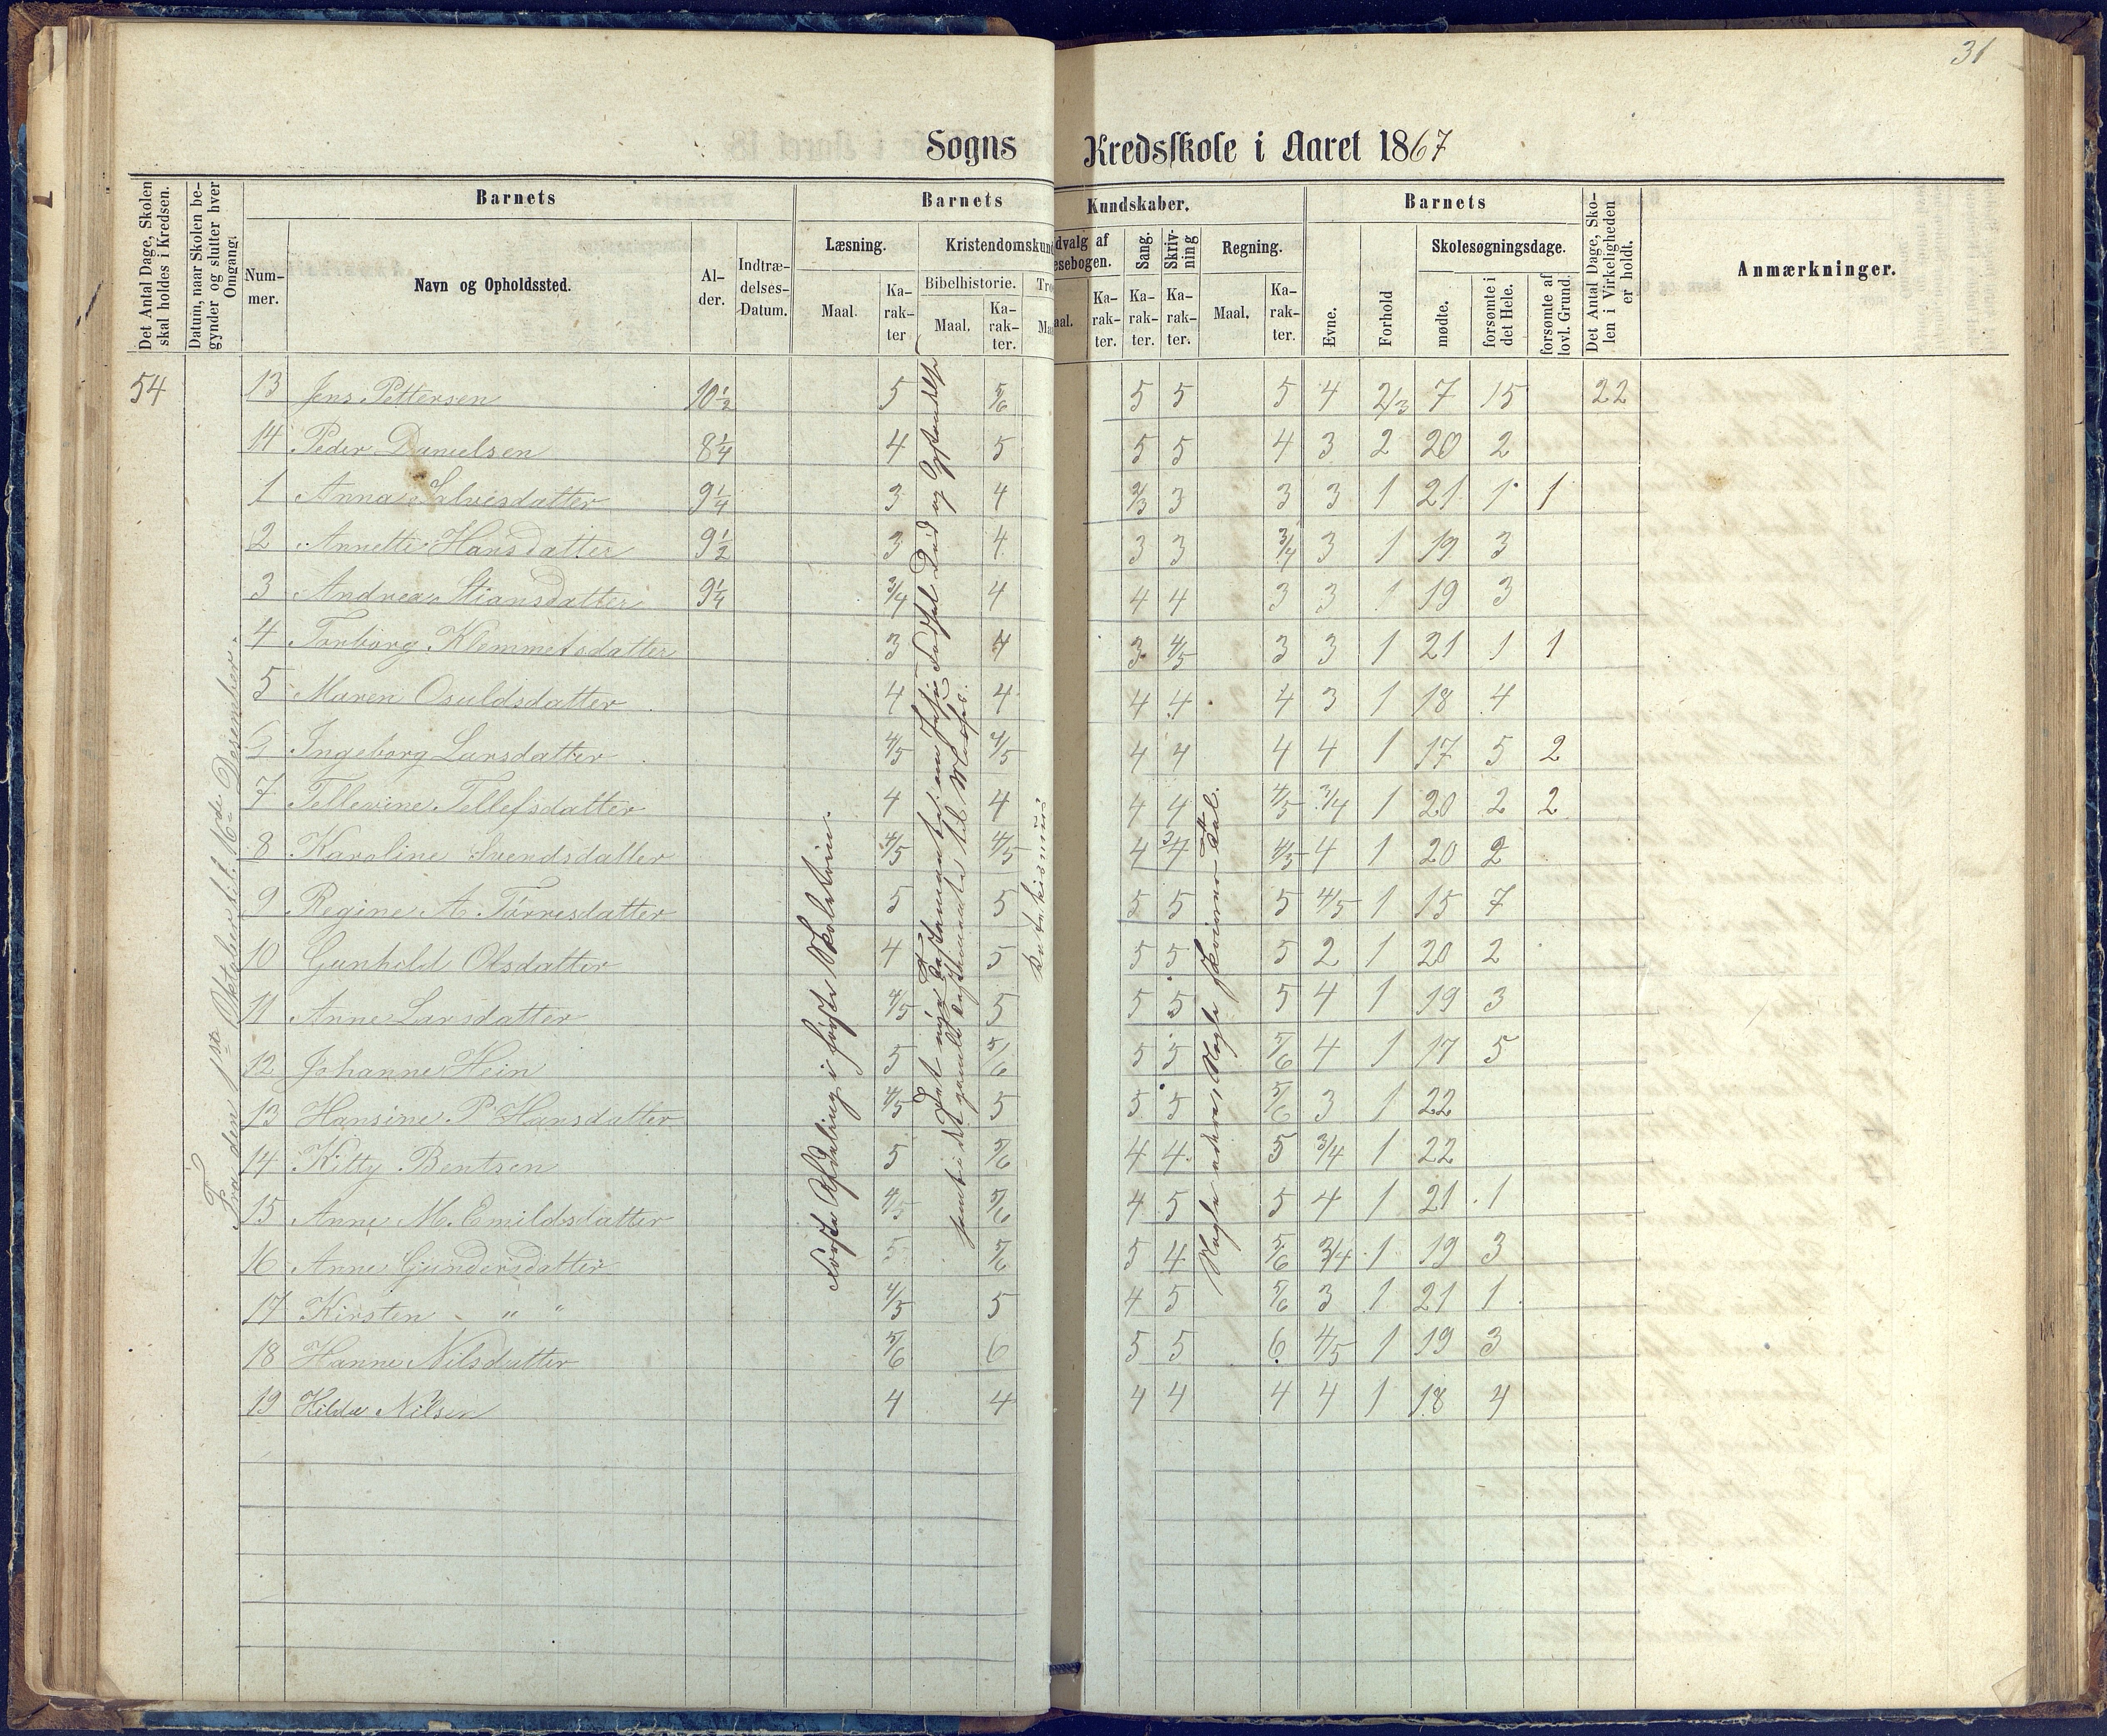 31
Sogns Kredsskole i Aaret 1867
Det Antal Dage, Skolen skal holdes i Kredsen.
Datum, naar Skolen begynder og slutter hver Omgang.
Barnets
Nummer.
Navn og Opholdssted.
Alder.
Indtrædelses-Datum.
Barnets Kundskaber.
Læsning.
Maal.
Karakter
Kristendomskund
Bibelhistorie.
Maal.
Karakter.
Tro
Maa
dvalg af
esebogen.
aal.
Karakter.
Sang.
Karakter.
Skrivning
Karakter.
Regning.
Maal.
Karakter.
Barnets
Evne.
Forhold
Skolesøgningsdage.
mødte.
forsømte i det Hele.
forsømte af lovl. Grund.
Det Antal Dage, Skolen i Virkeligheden er holdt.
Anmærkninger.
54 13 Jens Pettersen 10½ 5 5/6 5 5 5 4 2/3 7 15 22
14 Peder Danielsen 8¼ 4 5 5 5 4 3 2 20 2
1 Anna Salvesdatter 9¼ 3 4 2/3 3 3 3 1 21 1 1
2 Annette Hansdatter 9½ 3 4 3 3 3/4 3 1 19 3
3 Andrea Stiansdatter 9¼ 3/4 4 4 4 3 3 1 19 3
4 Torborg Klemmetsdatter 3 4 3 4/5 3 3 1 21 1 1
5 Maren Osuldsdatter 4 4 4 4 4 3 1 18 4
6 Ingeborg Larsdatter 4/5 4/5 4 4 4 4 1 17 5 2
7 Tellevine Tellefsdatter 4 4 4 4 4/5 3/4 1 20 2 2
8 Karoline Svendsdatter 4/5 4/5 4 3/4 4/5 4 1 20 2
9 Regine A. Tørresdatter 5 5 5 5 5 4/5 1 15 7
10 Gunhild Olsdatter 4 5 5 5 5 2 1 20 2
11 Anne Larsdatter 4/5 5 5 5 5 4 1 19 3
12 Johanne Hein 5 5/6 5 5 5/6 4 1 17 5
13 Hansine P Hansdatter 4/5 5 5 5 5/6 3 1 22
14 Kitty Bentsen 5 5/6 4 4 5 3/4 1 22
15 Anne M. Emildsdatter 4/5 5/6 4 5 5 4 1 21 1
16 Anne Gundersdatter 5 5/6 5 4 5/6 3/4 1 19 3
17 Kirsten " " 4/5 5 4 5 5/6 3 1 21 1
18 Hanne Nilsdatter 5/6 6 5 5 6 4/5 1 19 3
19 Hilda Nilsen 4 4 4 4 4 4 1 18 4
Fra den 1ste Oktober til 16de Desember.
Første Afdeling i første Skoletrin.
Det nye Testamente om Jesu Fødsel Død og Opstandelse
samt i det gamle Testamente til Moses.
Katekismus
Nogle addere Nogle skrive Tal.